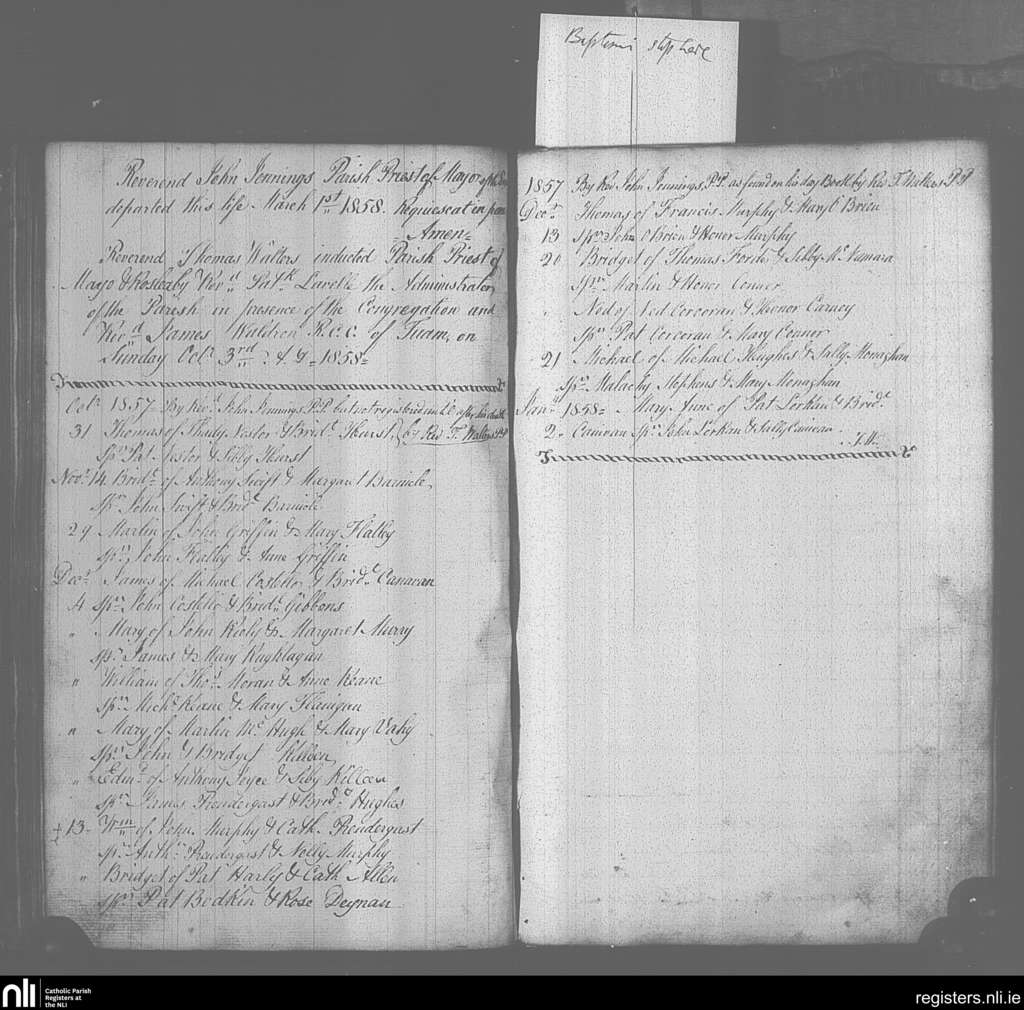 Baptisms stop here
Reverend John Jennings Parish Priest of Mayo
departed this life March 1st 1858. Requiescat in pace
Amen=
Reverend Thomas Walters inducted Parish Priest of
Mayo & Roslea by Revd Patk Lavelle the Administrator
of the Parish in presence of the Congregation and
Revd James Waldron R.C.C. of Tuam, on
Sunday Octr 3rd 1858=
Octr 1857 By Revd John Jennings P.P. but not registered until after his death
31 Thomas of Thady Nestor & Bridt Hurst, by Rev T. Walters P.P.
Sprs Pat Nestor & Siby Hurst
Novr 14 Bridt of Anthony Swift & Margaret Barnicle,
Sprs John Swift & Bridt Barnicle
29 Martin of John Griffin & Mary Flatley
Sprs John Flatly & Anne Griffin
Decr James of Michael Costello & Bridt Canavan
4 Sprs John Costello & Bridt Gibbons
" Mary of John & Margaret Murry
Sprs James & Mary
" William of Thos Moran & Anne Keane
Sprs Michl Keane & Mary Flanigan
" Mary of Martin Mc Hugh & Mary Vahy
Sprs John & Bridget Killeen,
" Edmd of Anthony Joyce & Siby Killeen
Sprs James Prendergast & Bridt Hughes
+ 13- Wm of John Murphy & Cath. Prendergast
Sprs Anthy Prendergast & Nelly Murphy
" Bridget of Pat Harly & Cath Allen
Sprs Pat Bodkin & Rose Deynan
1857 By Rev. John Jennings P.P. as found on his day Book by Rev T. Walters P.P.
Decr Thomas of Francis Murphy & Mary O Brien
13 Sprs John O Brien & Honor Murphy
20 Bridget of Thomas Forde & Sibby Mc Namara
Sprs Martin & Honor Conner
Ned of Ned Corcoran & Honor Carney
Sprs Pat Corcoran & Mary Conner
21 Michael of Michael Hughes & Sally Monaghan
Sprs Malachy Stephens & Mary Monaghan
Jany 1858= Mary Anne of Pat Lorkan & Bridt
2- Canavan Sprs John Lorkan & Sally Canavan
T.W.
nli
Catholic Parish
Registers at
the NLI
registers.nli.ie